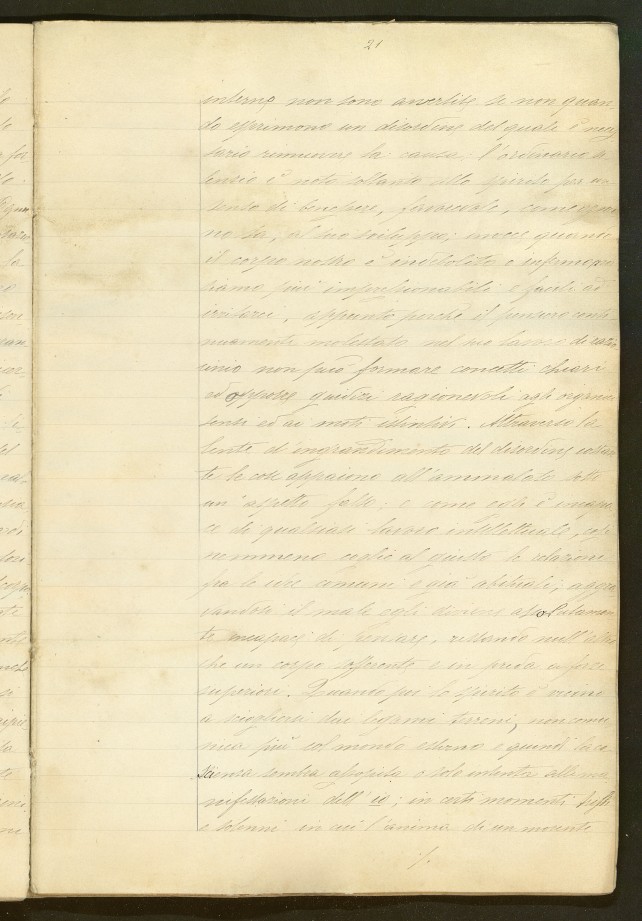 21
interne non sono avvertite se non quan
do esprimono un disordine del quale è neces
sario rimuovere la causa; l'ordinario si
lenzio è noto soltanto allo spirito per un
senso di benessere, favorevole, come ognu
no sa, al suo sviluppo; invece quando
il corpo nostro è indebolito o infermo
siamo più impressionabili e facili ad
irritarci, appunto perchè il pensiero conti
nuamente molestato nel suo lavoro di razio
cinio non può formare concetti chiari
ed opporre giudizi ragionevoli agli organi
sensi ed ai moti istintivi. Attraverso la
lente d'ingrandimento del disordine
te le cose appaiono all'ammalato sotto
un'aspetto falso; e come egli è incapa
ce di qualsiasi lavoro intellettuale, così
nemmeno coglie al giusto le relazioni
fra le idee comuni e già abituali; aggra
vandosi il male egli diviene assolutamen
te incapace di pensare, restando null'altro
che un corpo sofferente e in preda a forze
superiori. Quando poi lo spirito è vicino
a sciogliersi dai legami terreni, non comu
nica più col mondo esterno e quindi la co
scienza sembra assopita e solo intenta alle ma
nifestazioni dell'io; in certi momenti
e solenni in cui l'anima di un morente
./.